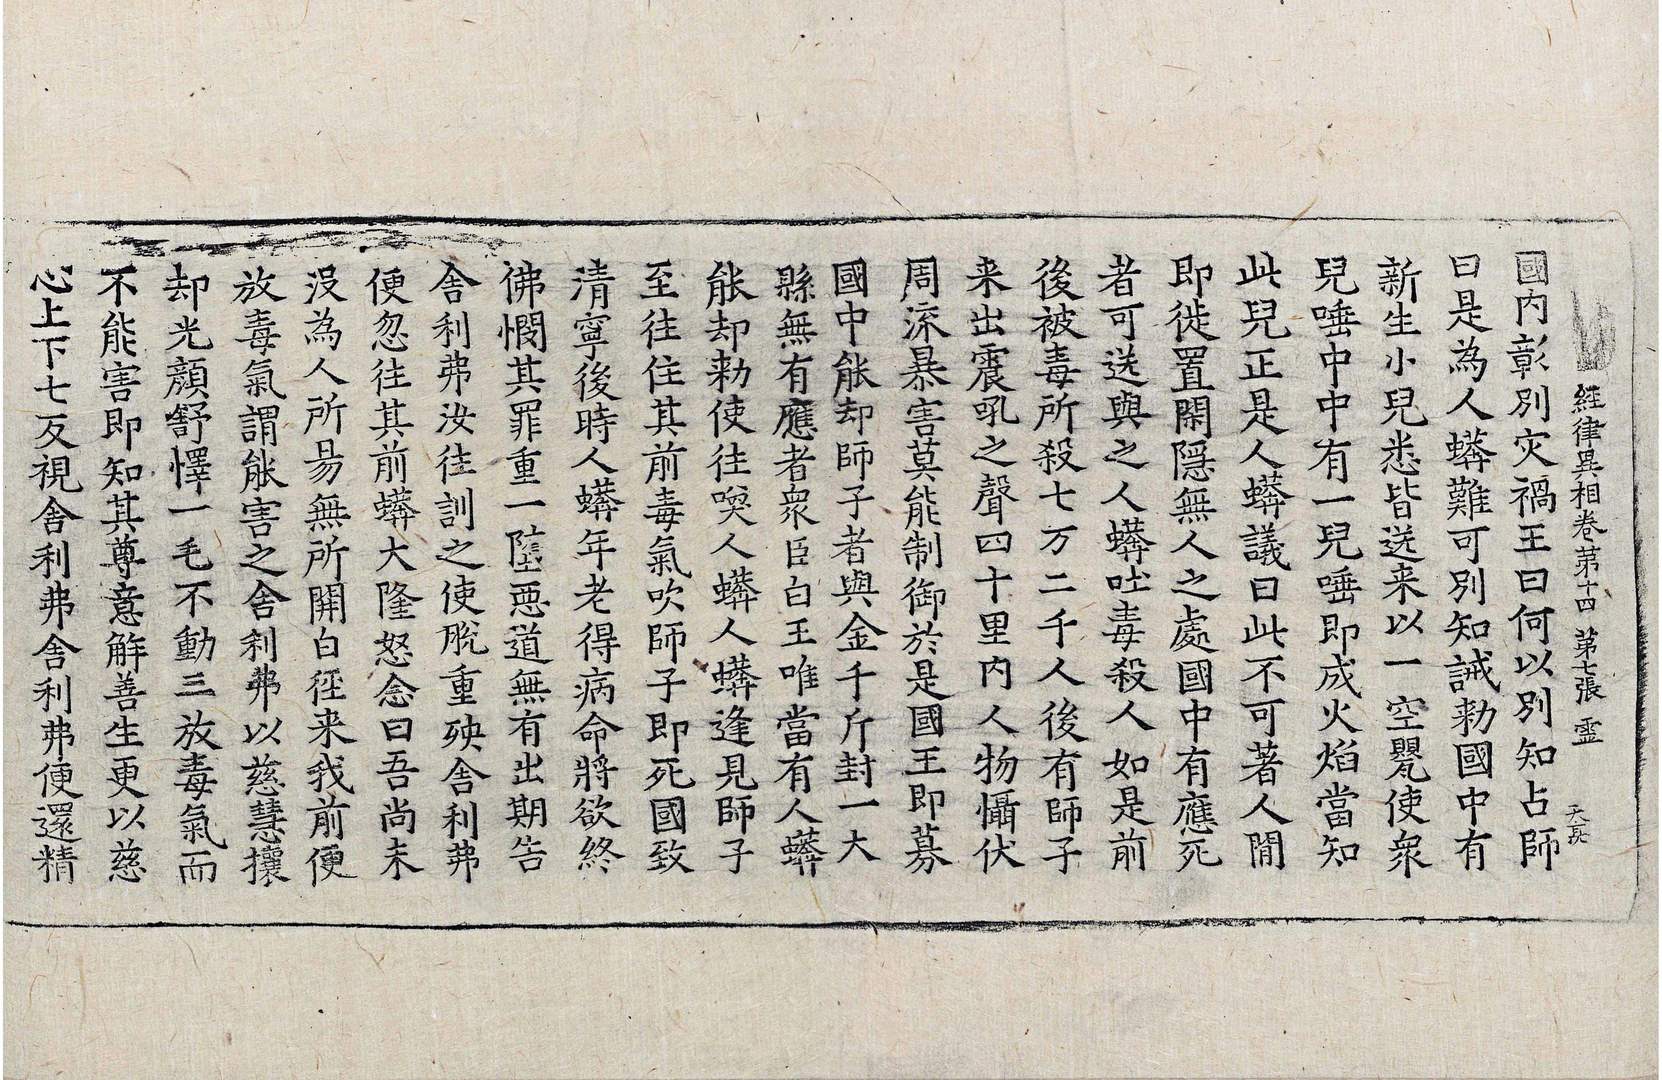 經律異相卷第十四 第七張 霊
天長
國内彰別灾禍王曰何以別知占師
曰是為人蟒難可別知誡勑國中有
新生小兒悉皆送来以一空甖使衆
兒唾中中有一兒唾即成火焰當知
此兒正是人蟒議曰此不可著人間
即徙置閑隠無人之處國中有應死
者可送與之人蟒吐毒殺人如是前
後被毒所殺七万二千人後有師子
来出震吼之聲四十里内人物懾伏
周流暴害莫能制御於是國王即募
國中能却師子者與金千斤封一大
縣無有應者衆臣白王唯當有人蟒
能却勑使往喚人蟒人蟒逢見師子
至往住其前毒氣吹師子即死國致
清寧後時人蟒年老得病命將欲終
佛憫其罪重一墮惡道無有出期告
舍利弗汝往訓之使脫重殃舍利弗
便忽往其前蟒大隆怒念曰吾尚未
没為人所易無所開白徑来我前便
放毒氣謂能害之舍利弗以慈慧攘
却光顏舒懌一毛不動三放毒氣而
不能害即知其尊意解善生更以慈
心上下七反視舍利弗舍利弗便還精